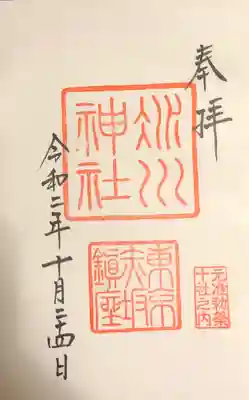 奉拝
氷川
神社
東京
赤坂
鎮座
元准勅祭
十社之内
令和二年十月二十四日